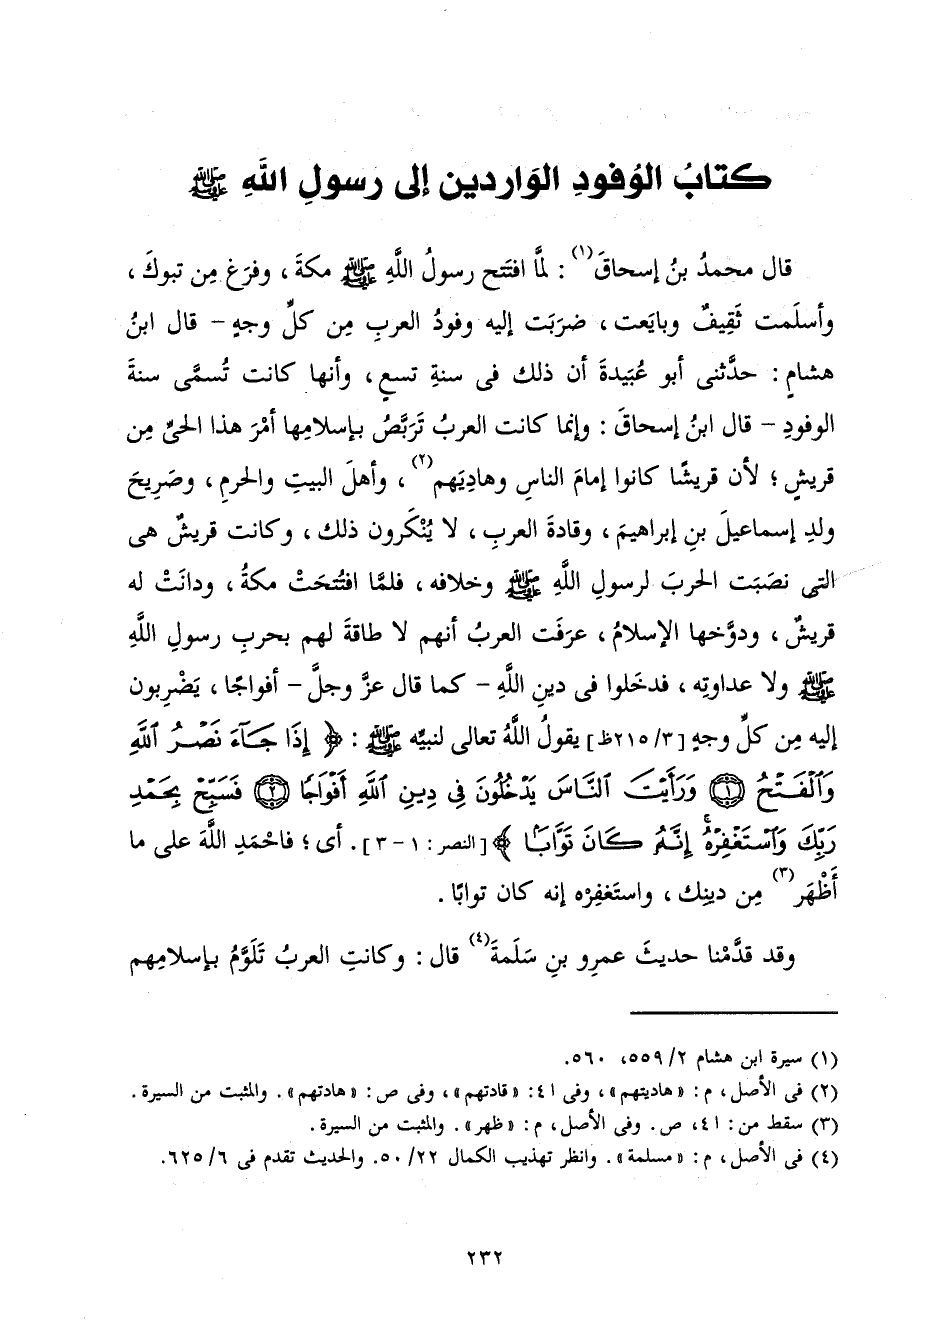 كتابُ الوُفودِ الوَاردين إلى رسولِ اللَّهِ ﷺ
قال محمدُ بنُ إسحاقَ(١) : لمَّا افتَتح رسولُ اللَّهِ ﷺ مكةَ ، وفرَغ مِن تبوكَ ،
وأسلَمت ثَقِيفٌ وبايَعت ، ضرَبَت إليه وفودُ العربِ مِن كلِّ وجهٍ – قال ابنُ
هشامٍ : حدَّثنى أبو عُبَيدةَ أن ذلك فى سنةِ تسعٍ ، وأنها كانت تُسمَّى سنةَ
الوفودِ – قال ابنُ إسحاقَ : وإنما كانت العربُ تَرَبَّصُ بإسلامِها أمْرَ هذا الحىِّ مِن
قريشٍ ؛ لأن قريشًا كانوا إمامَ الناسِ وهادِيَهم(٢) ، وأهلَ البيتِ والحرمِ ، وصَرِيحَ
ولدِ إسماعيلَ بنِ إبراهيمَ ، وقادةَ العربِ ، لا يُنْكَرون ذلك ، وكانت قريشٌ هى
التى نصَبَت الحربَ لرسولِ اللَّهِ ﷺ وخلافه ، فلمَّا افتُتحَتْ مكةُ ، ودانَتْ له
قريشٌ ، ودوَّخها الإسلامُ ، عرَفَت العربُ أنهم لا طاقةَ لهم بحربِ رسولِ اللَّهِ
ﷺ ولا عداوتِه ، فدخَلوا فى دينِ اللَّهِ – كما قال عزَّ وجلَّ – أفواجًا ، يَضْرِبون
إليه مِن كلِّ وجهٍ [٣/ ٢١٥ظ] يقولُ اللَّهُ تعالى لنبيِّه ﷺ : ﴿ إِذَا جَآءَ نَصْرُ ٱللَّهِ
وَٱلْفَتْحُ ۝١ وَرَأَيْتَ ٱلنَّاسَ يَدْخُلُونَ فِى دِينِ ٱللَّهِ أَفْوَاجًا ۝٢ فَسَبِّحْ بِحَمْدِ
رَبِّكَ وَٱسْتَغْفِرْهُ ۚ إِنَّهُۥ كَانَ تَوَّابًۢا ﴾ [النصر : ١ - ٣] . أى ؛ فاحْمَدِ اللَّهَ على ما
أَظْهَر(٣) مِن دينِك ، واستَغفِرْه إنه كان توابًا .
وقد قدَّمْنا حديثَ عمرِو بنِ سَلَمةَ(٤) قال : وكانتِ العربُ تَلَوَّمُ بإسلامِهم
(١) سيرة ابن هشام ٢/ ٥٥٩، ٥٦٠.
(٢) فى الأصل ، م : «هاديتهم» ، وفى ا ٤: «قادتهم» ، وفى ص : «هادتهم» . والمثبت من السيرة .
(٣) سقط من : ا ٤، ص . وفى الأصل ، م : «ظهر» . والمثبت من السيرة .
(٤) فى الأصل ، م : «مسلمة» . وانظر تهذيب الكمال ٢٢/ ٥٠. والحديث تقدم فى ٦/ ٦٢٥.
٢٣٢